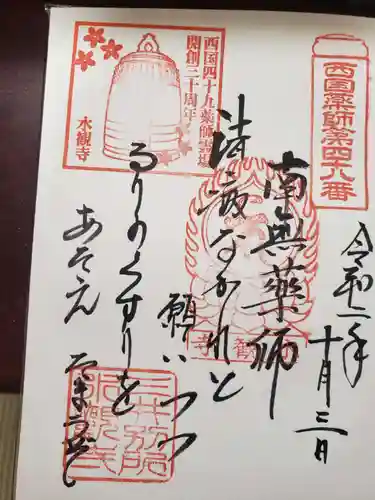 西国薬師第四八番
西国四十九薬師霊場
開創三十周年
水観寺
令和二年
十月三日
南無薬師
諸病なかれと
願いつつ
るりのくすりを
あたえ
三井別所
水観寺